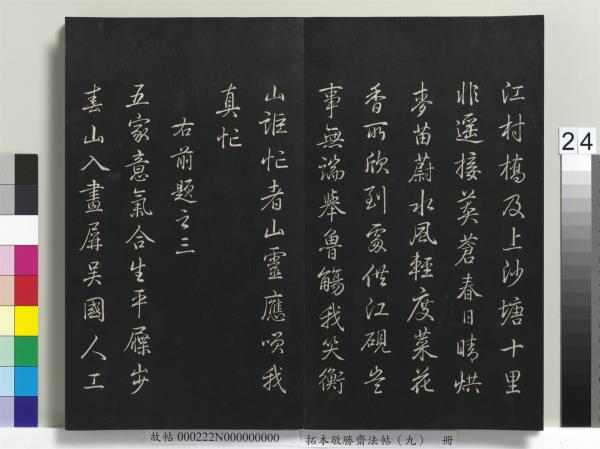 江村橋及上沙塘十里
非遥接莽蒼春日晴烘
麥苗蔚水風輕度菜花
香所欣到處供江硯豈
事無端舉魯觴我笑衡
山詎忙者山靈應哂我
真忙
右前題之三
五家意氣合生平屧步
春山入畫屏吳國人工
24
故帖 000222N000000000
拓本敬勝齋法帖（九） 冊